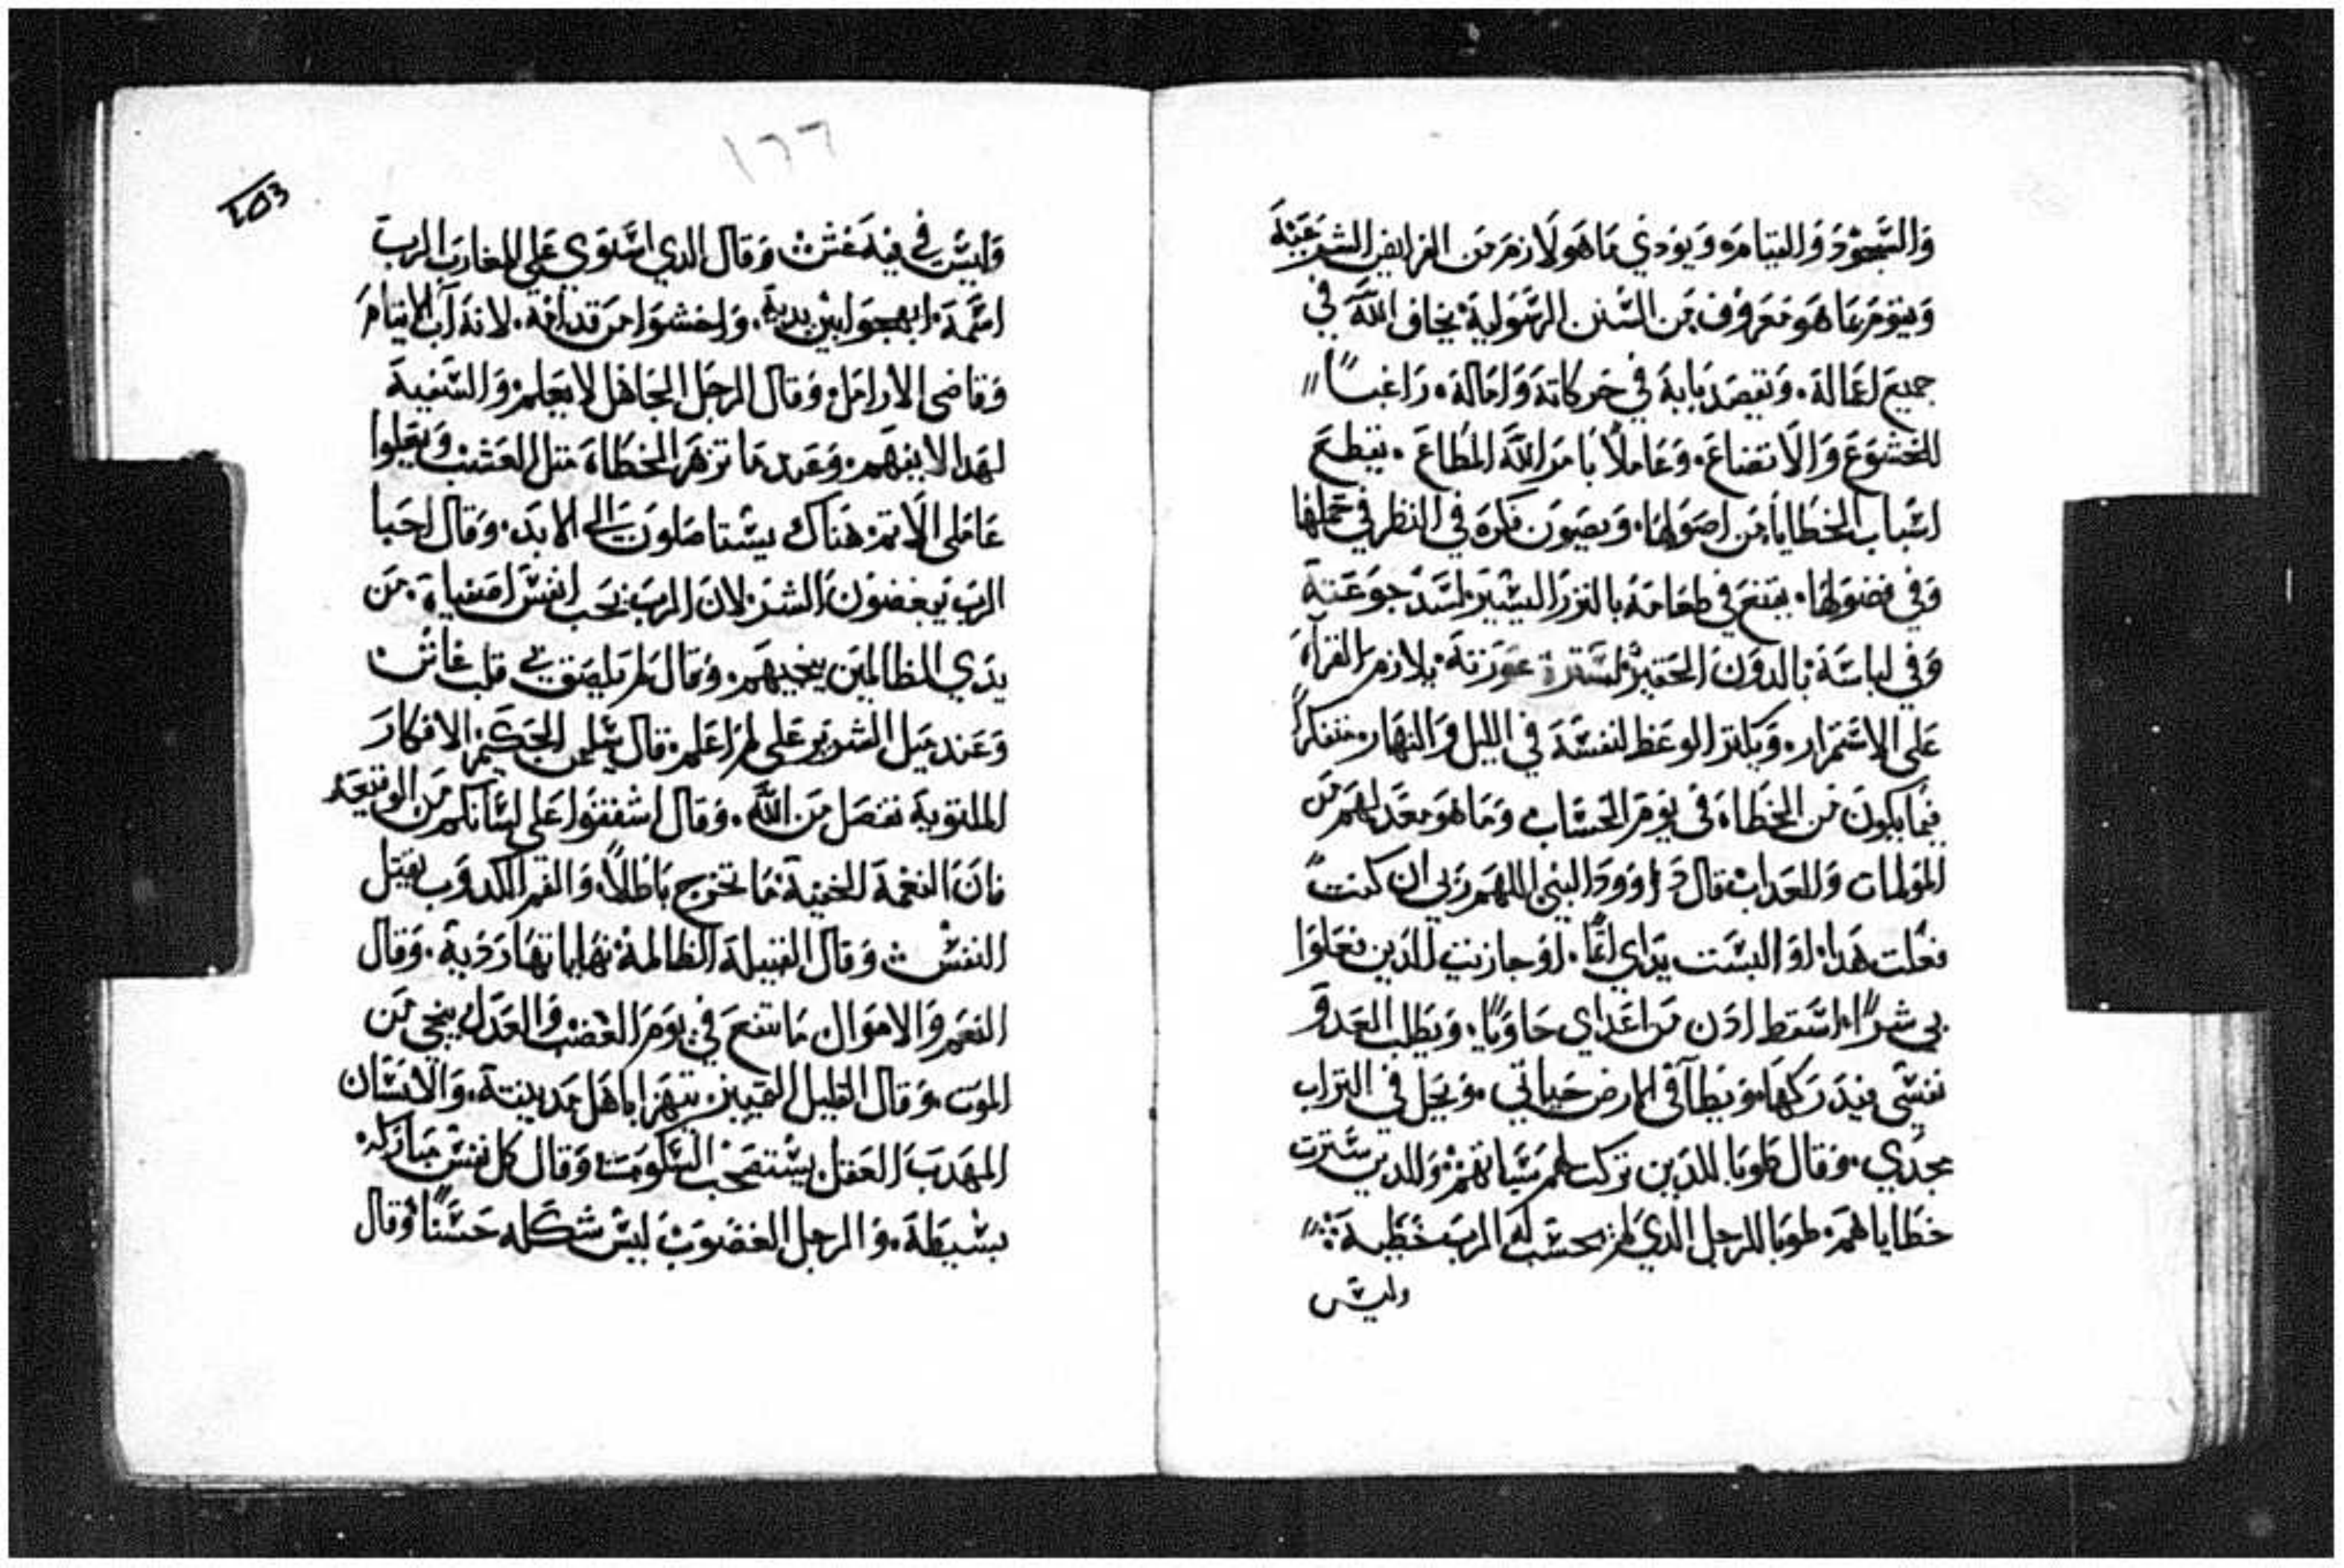 والسجود والقيام. ويودي ما هو لازم من الفرايض الشرعية
ويقوم بما هو معروف من السنن الرسولية. يخاف الله في
جميع اعماله. ويقصد بابه في حركاته وامالة. راغباً
للخشوع والاتضاع. وعاملاً بامر الله المطاع. يقطع
اسباب الخطايا من اصولها. ويصون فكره في النظر في
وفي فضولها. يقنع في طعامه بالنزر اليسير لسد جوعته
وفي لباسه بالدون الحقير لستر عورته. يلازم القراه
على الاستمرار. ويكتر الوعظ لنفسه في الليل والنهار. متفكراً
فيما يكون من الخطاه في يوم الحساب وما هو معد لهم من
المولمات والعداب قال داوود النبي اللهم ربي ان كنت
فعلت هدا. او البست يداي اثما. او جازيت للدين فعلوا
بي شراً. اسقط ادن من اعداي حاويا. ويطلب العدو
نفسي فيدركها. ويطا في الارض حياتي. ويحل في التراب
مجدي. وقال طوبا للدين تركت لهم سياتهم. والدين سترت
خطاياهم. طوبا للرجل الدي لم يحسب له الرب خطية
وليس
١٦٦
وليس في فيه غش وقال الدي استوي علي المغارب الرب
اسمه. ابهجوا بين يديه. واخشوا من قدامه. لانه اب الايتام
وقاضي الارامل. وقال الرجل الجاهل لا يعلم. والسفيه
لهدا لا يفهم. وعند ما تزهر الخطاه متل العشب ويعلوا
عاملي الاتم. هناك يستاصلون الى الابد. وقال احبا
الرب يبغضون الشر. لان الرب يحب انفس اصفياه. من
يدي الظالمين ينجيهم. وقال لم يلصق بي قلب غاش
وعند ميل الشرير علي لم اعلم. قال سليمن الحكيم الافكار
الملتوية تفصل من الله. وقال اشفقوا على لسانكم من الوقيعه
فان النغمة الخفية ما تخرج باطلاً. والفم الكدوب يقتل
النفس وقال القبيلة الظالمة نهاياتها رديه. وقال
النعم والاموال ما تنفع في يوم الغضب والعدل ينجي من
الموت. وقال القليل التمييز. يتهزا باهل مدينته. والانسان
المهدب العقل يستصحب السكوت وقال كل نفس مباركه
بسيطة. والرجل الغضوب ليس شكله حسناً وقال